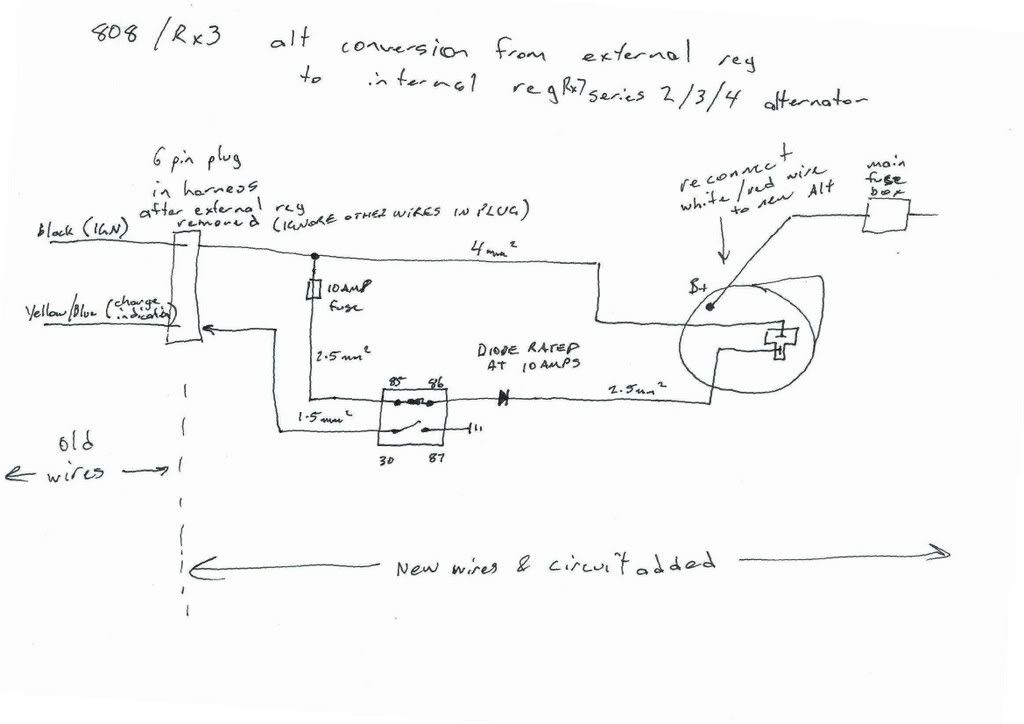 808 / Rx3 alt conversion from external reg
to internal reg Rx7 series 2/3/4 alternator
6 pin plug
in harness
after external reg
removed (IGNORE OTHER WIRES IN PLUG)
reconnect
white/red wire
to new Alt
main
fuse
box
Black (IGN)
4mm²
B+
10AMP
fuse
Yellow/Blue (charge
indication)
2.5mm²
DIODE RATED
AT 10AMPS
85 86
2.5mm²
1.5mm²
30 87
old
wires
New wires & circuit added